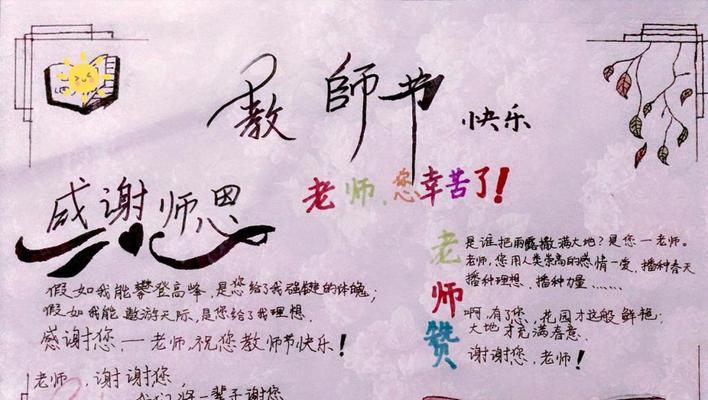 教師节快乐
老师,您幸苦了!
感谢师恩
假如我能攀登高峰,是您给了我强健的体魄;
假如我能遨游天际,是您给了我理想.
感谢您,一老师,祝您教师节快乐!
老师,谢谢您,
我们将一辈子谢您
老师赞
是谁把雨露撒满大地?是您一老师。
老师,您用人类崇高的感情一爱,播种春天
播种理想、播种力量......
啊,有了您,花园才这般鲜艳,
大地才充满春意.
谢谢您,老师!